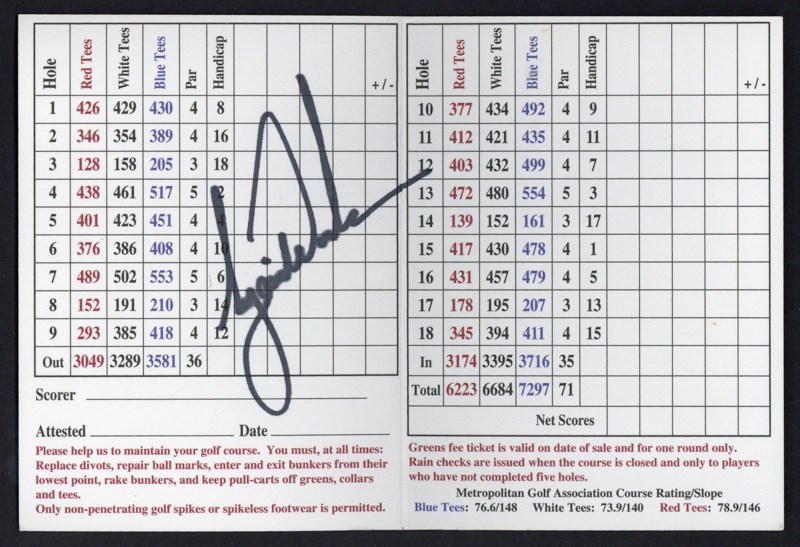 Hole Red Tees White Tees Blue Tees Par Handicap + / -
1 426 429 430 4 8
2 346 354 389 4 16
3 128 158 205 3 18
4 438 461 517 5 2
5 401 423 451 4 4
6 376 386 408 4 10
7 489 502 553 5 6
8 152 191 210 3 14
9 293 385 418 4 12
Out 3049 3289 3581 36
Scorer
Attested Date
Please help us to maintain your golf course. You must, at all times:
Replace divots, repair ball marks, enter and exit bunkers from their
lowest point, rake bunkers, and keep pull-carts off greens, collars
and tees.
Only non-penetrating golf spikes or spikeless footwear is permitted.
Hole Red Tees White Tees Blue Tees Par Handicap + / -
10 377 434 492 4 9
11 412 421 435 4 11
12 403 432 499 4 7
13 472 480 554 5 3
14 139 152 161 3 17
15 417 430 478 4 1
16 431 457 479 4 5
17 178 195 207 3 13
18 345 394 411 4 15
In 3174 3395 3716 35
Total 6223 6684 7297 71
Net Scores
Greens fee ticket is valid on date of sale and for one round only.
Rain checks are issued when the course is closed and only to players
who have not completed five holes.
Metropolitan Golf Association Course Rating/Slope
Blue Tees: 76.6/148 White Tees: 73.9/140 Red Tees: 78.9/146